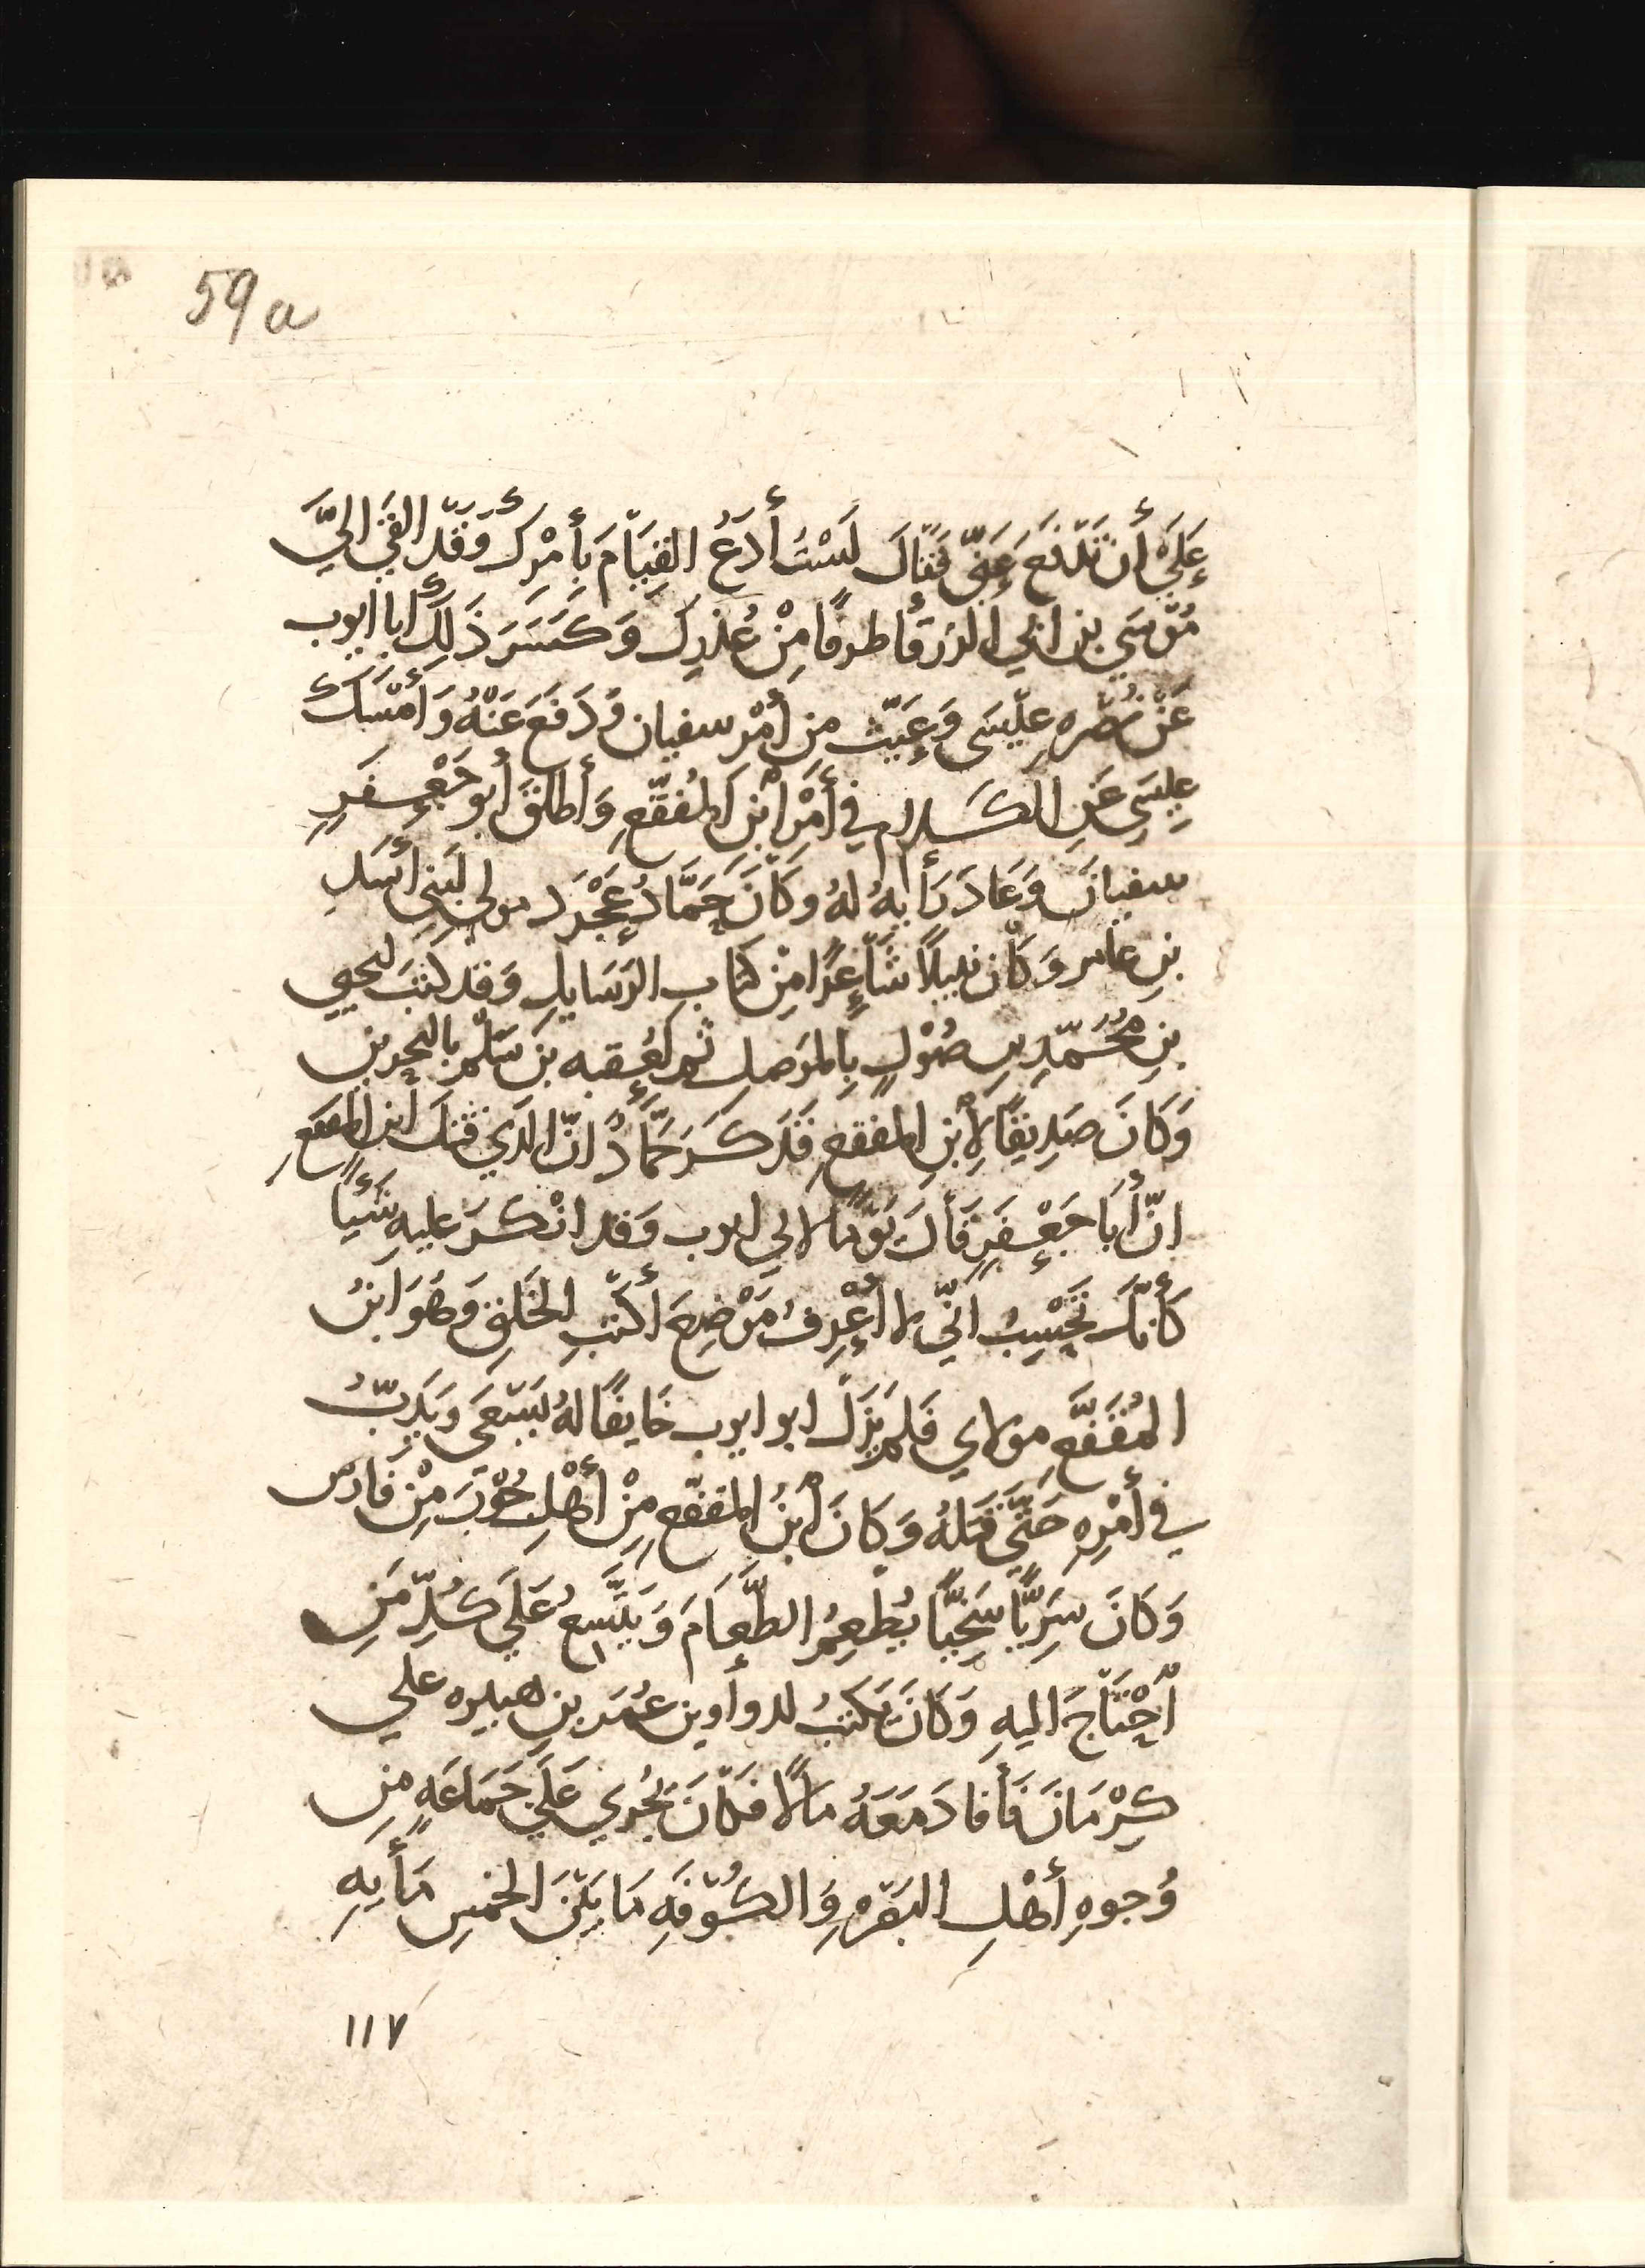 59a
عَلَيَّ أن تَدْفَعَ عَنِّي فَقَالَ لَسْتُ أَدَعُ القِيَامَ بِأَمْرِكَ وَقَدْ القَيَ اليَّ
مُوْسَي بن ابي الزرقا طرفًا مِنْ عُذْرِكَ وَكَسَرَ ذَلِكَ أبا ايوب
عَنْ نُصْرَهِ عِيْسَى وَ مِن أمْرِ سفيان وَدَفَعَ عَنْهُ وَأَمْسَكَ
عِيسَي عَنِ الكَلام في أمْرِ ابْنِ المُقَفَّعِ وَأَطلقَ أبو جَعْفَرٍ
سفيانَ وَعَادَ رَأيهُ لهُ وكانَ حَمَّادُ عَجْرَد مولي لبَنِي أسَلِ
بنِ عامر وَكان نبيلاً شَاعِرًا مِنْ كتابِ الرَسَايلِ وَقد كتَبَ ليحيي
بنِ مُحُمَّدِ بنِ صُوْلٍ بِالموَصلِ ثم لعُقبه بن سَلْم بالبحرين
وَكَانَ صَدِيقًا لِأبْنِ المقفعِ فَذَكَرَ حَمَّادُ انَّ الذي قتلَ أبن المقفعِ
انّ أبَا جَعْفَرٍ قَالَ يَوْمًا لابي ايوب وَقد انْكَرَ عليهِ شَيْأً
كأنَّكَ تَحْسِبُ انّي لا أعْرِفُ مَوْضِعَ أكتبِ الخَلقِ وَهُوَ ابنُ
المُقَفَّعِ مولاي فَلم يَزَلْ ابو ايوب خَايفًا لهُ يَسْعَى وَيَدِبُّ
في أمْرِهِ حَتَّي قتلهُ وَكانَ أبْنُ المقفّعِ مِنْ أهْلِ جُوْرَ مِنْ فَارسَ
وَكَانَ سِرِيًّا سَخِيًّا يُطْعِمُ الطَّعَامَ وَيَتَّسِعُ عَلَي كُلِّ مَنِ
اْحْتَاجَ اليهِ وَكَانَ يَكتبُ لدواوين عُمَر بنِ هبيره علي
كِرْمَانَ فَأفادَ مَعَهُ مالًا فكانَ يُجْري عَلَي جَمَاعَهٍ مِن
وُجوهِ أهْلِ البَصْرهِ وَالكُوْفَهِ مَا بَيْنَ الخمسِ مَأيهِ
١١٧